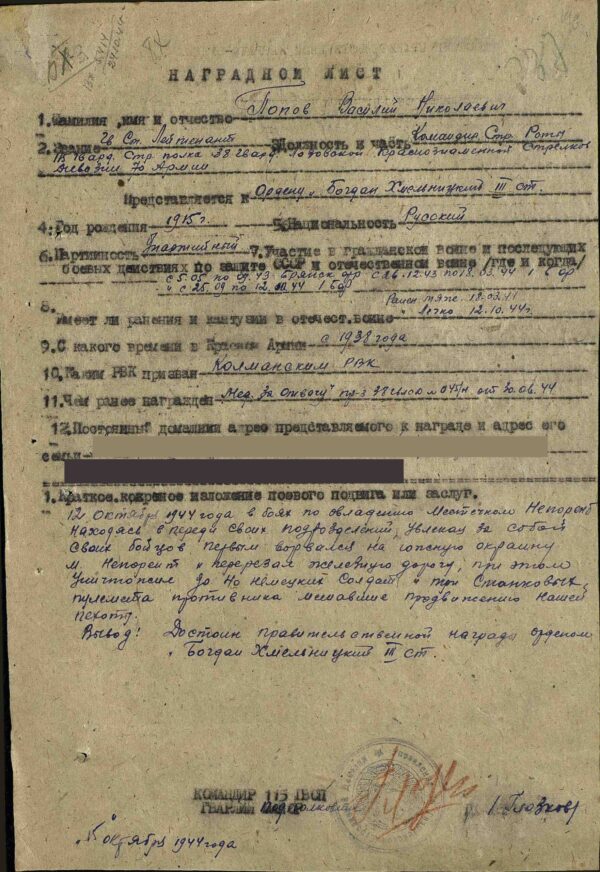 НАГРАДНОЙ ЛИСТ
1. Фамилия, имя и отчество Попов Василий Николаевич
2. Звание Гв Ст. Лейтенант 3. Должность и часть Командир Стр. Роты
Гвард. Стр. полка 38 Гвард. Лозовской Краснознаменной Стрелков
дивизии 70 Армии
Представляется к Ордену „Богдан Хмельницкий III ст.
4. Год рождения 1915 г. 5. Национальность Русский
6. Партийность 7. Участие в гражданской войне и последующих
боевых действиях по защите СССР и отечественной войне /где и когда/
с 5.05 по 43 Брянск фр с 26.12.43 по 18.03.44 1 Б фр
и с 25.09 по 12.10.44 1 Бфр
8. Ранен тяж. 18.03.44
Имеет ли ранения и контузии в отечест. войне „ Легко 12.10.44г.
9. С какого времени в Красной Армии с 1938 года
10. Каким РВК призван Колманским РВК
11. Чем ранее награжден Мед. „За Отвагу" пр-з 38 от 30.08.44
12. Постоянный домашний адрес представляемого к награде и адрес его
семьи
1. Краткое, конкретное изложение боевого подвига или заслуг.
12 Октября 1944 года в боях по овладению Местечком Непорент
Находясь впереди своих подразделений, увлекая за собой
своих бойцов первым ворвался на окраину
м. Непорент и перерезал железную дорогу, при этом
уничтожил до 40 немецких Солдат, и три Станковых
пулемета противника мешавшие продвижению нашей
пехоты.
Вывод: Достоин правительственной награды орденом
„Богдан Хмельницкий III ст.
КОМАНДИР 115 ГВСП
ГВАРДИИ Подполковник /Глазков/
Октября 1944 года